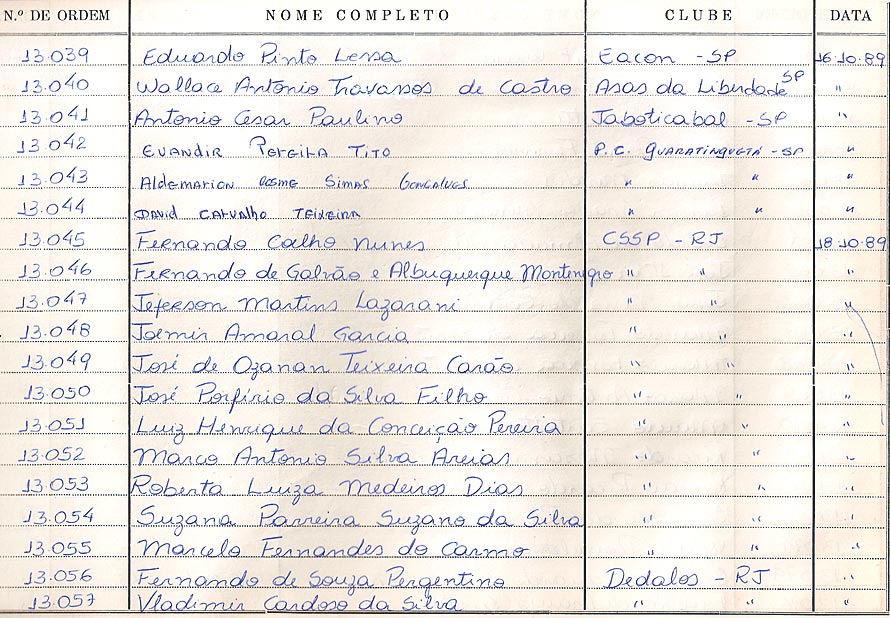 N.º DE ORDEM NOME COMPLETO CLUBE DATA
13.039 Eduardo Pinto Lessa Eacon - SP 16.10.89
13.040 Wallace Antonio Travassos de Castro Asas da Liberdade SP "
13.041 Antonio Cesar Paulino Jaboticabal - SP "
13.042 EVANDIR PEREIRA TITO P.C. GUARATINGUETÁ - SP "
13.043 ALDEMARION COSME SIMAS GONCALVES " " "
13.044 DAVID CARVALHO TEIXEIRA " " "
13.045 Fernando Coelho Nunes CSSP - RJ 18.10.89
13.046 Fernando de Galvão e Albuquerque Montenegro " " "
13.047 Jeferson Martins Lazarani " " "
13.048 Joemir Amaral Garcia " " "
13.049 José de Ozanan Teixeira Carão " " "
13.050 José Porfirio da Silva Filho " " "
13.051 Luiz Henrique da Conceição Pereira " " "
13.052 Marco Antonio Silva Areias " " "
13.053 Roberta Luiza Medeiros Dias " " "
13.054 Suzana Parreira Suzano da Silva " " "
13.055 Marcelo Fernandes do Carmo " " "
13.056 Fernando de Souza Pergentino Dedalos - RJ "
13.057 Vladimir Cardoso da Silva " " "